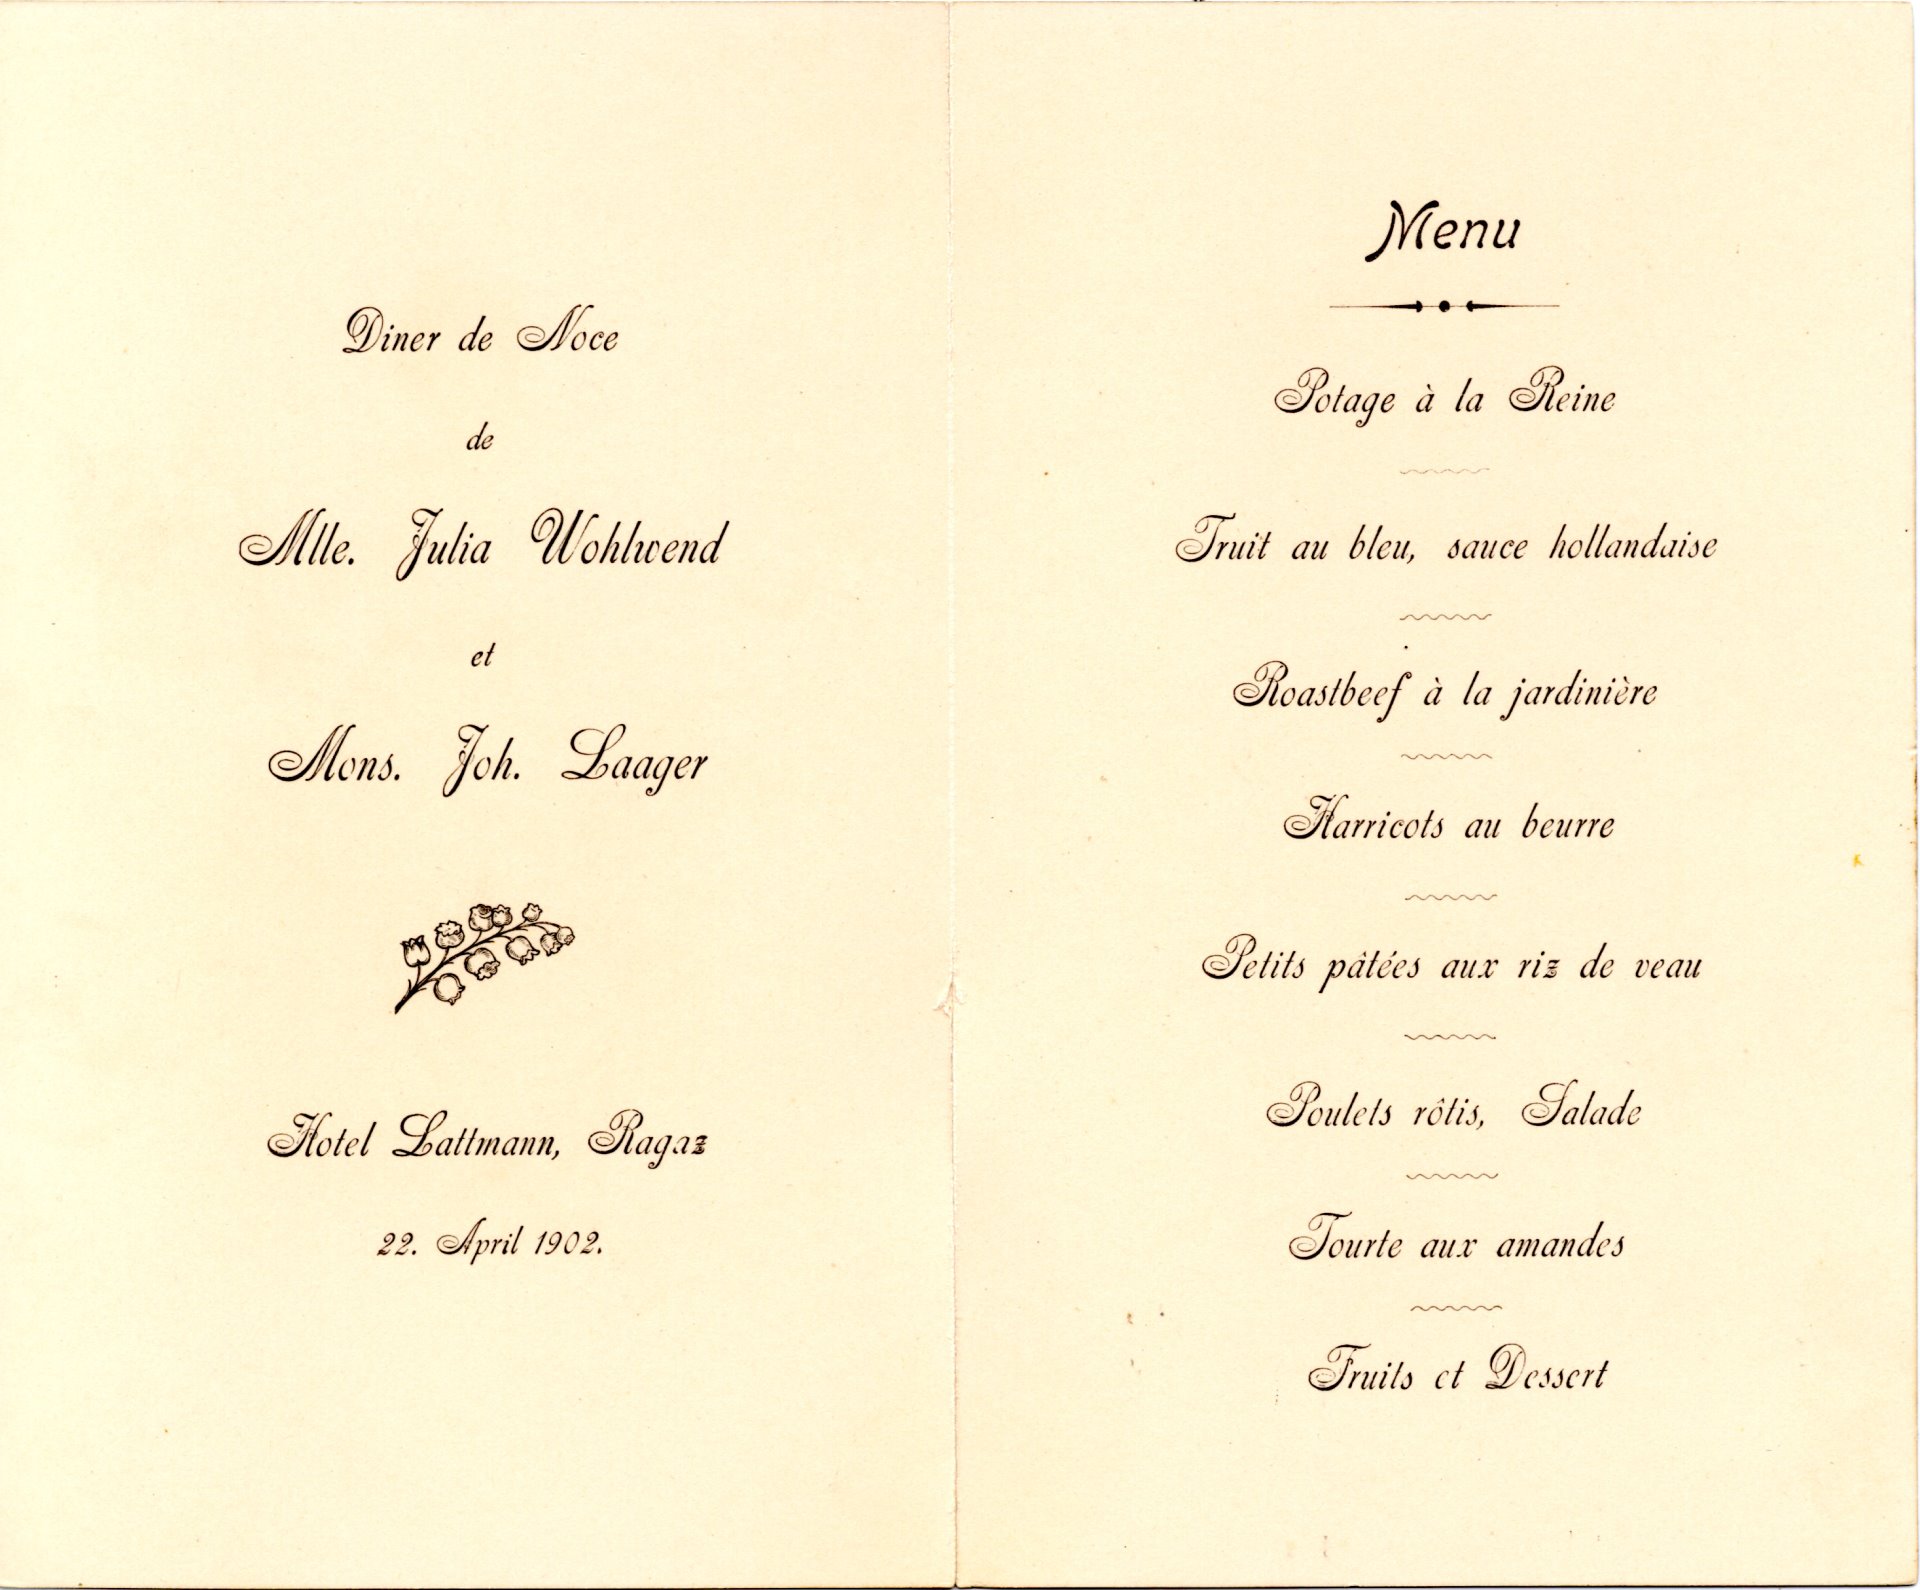 Diner de Noce
de
Mlle. Julia Wohlwend
et
Mons. Joh. Laager
Hotel Lattmann, Ragaz
22. April 1902.
Menu
Potage à la Reine
Truit au bleu, sauce hollandaise
Roastbeef à la jardinière
Harricots au beurre
Petits pâtées aux riz de veau
Poulets rôtis, Salade
Tourte aux amandes
Fruits et Dessert